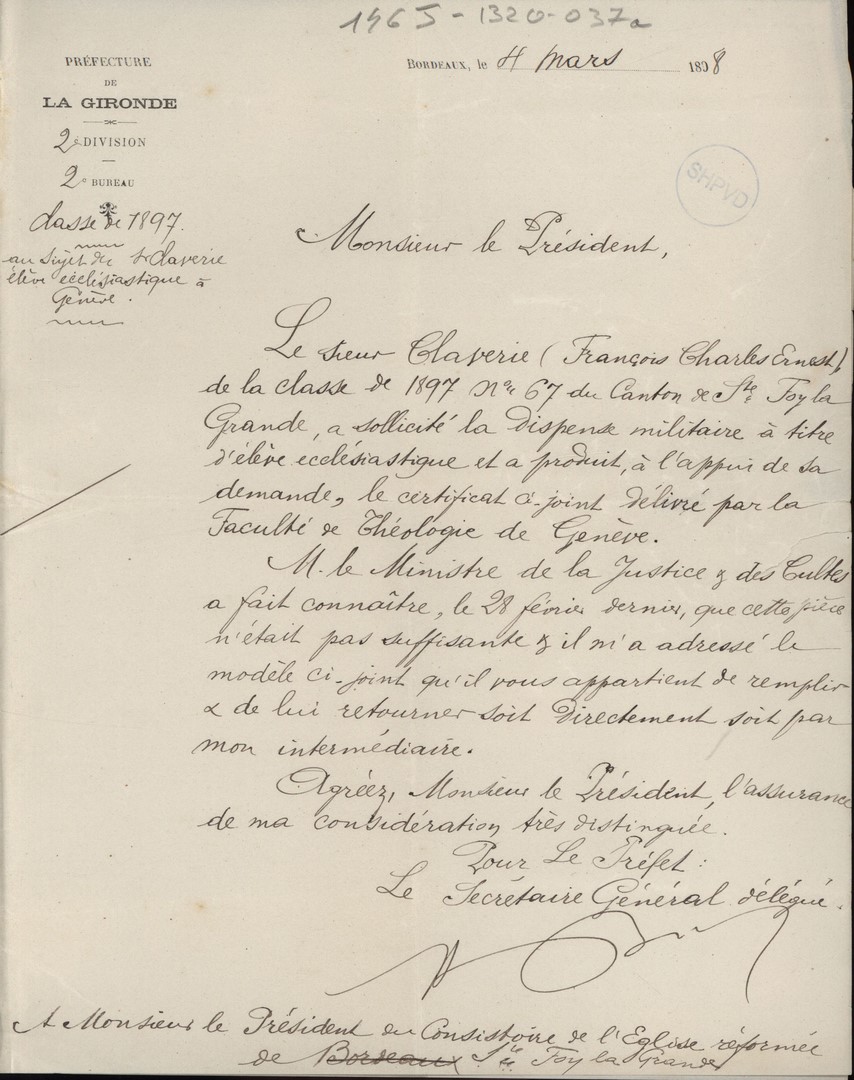 1465-1320-037a
PRÉFECTURE
DE
LA GIRONDE
2e DIVISION
2e BUREAU
Classe de 1897.
au sujet du Sr Claverie
élève ecclésiastique à
Genève.
BORDEAUX, le 4 mars 1898
SHPVD
Monsieur le Président,
Le sieur Claverie (François Charles Ernest),
de la classe de 1897 No 67 du Canton de Ste Foy la
Grande, a sollicité la dispense militaire à titre
d'élève ecclésiastique et a produit, à l'appui de sa
demande, le certificat ci-joint délivré par la
Faculté de Théologie de Genève.
M. le Ministre de la Justice & des Cultes
a fait connaître, le 28 février dernier, que cette pièce
n'était pas suffisante & il m'a adressé le
modèle ci-joint qu'il vous appartient de remplir
& de lui retourner soit directement soit par
mon intermédiaire.
Agréez, Monsieur le Président, l'assurance
de ma considération très distinguée.
Pour Le Préfet :
Le Secrétaire Général délégué.
A Monsieur le Président du Consistoire de l'Eglise réformée
de Bordeaux Ste Foy la Grande